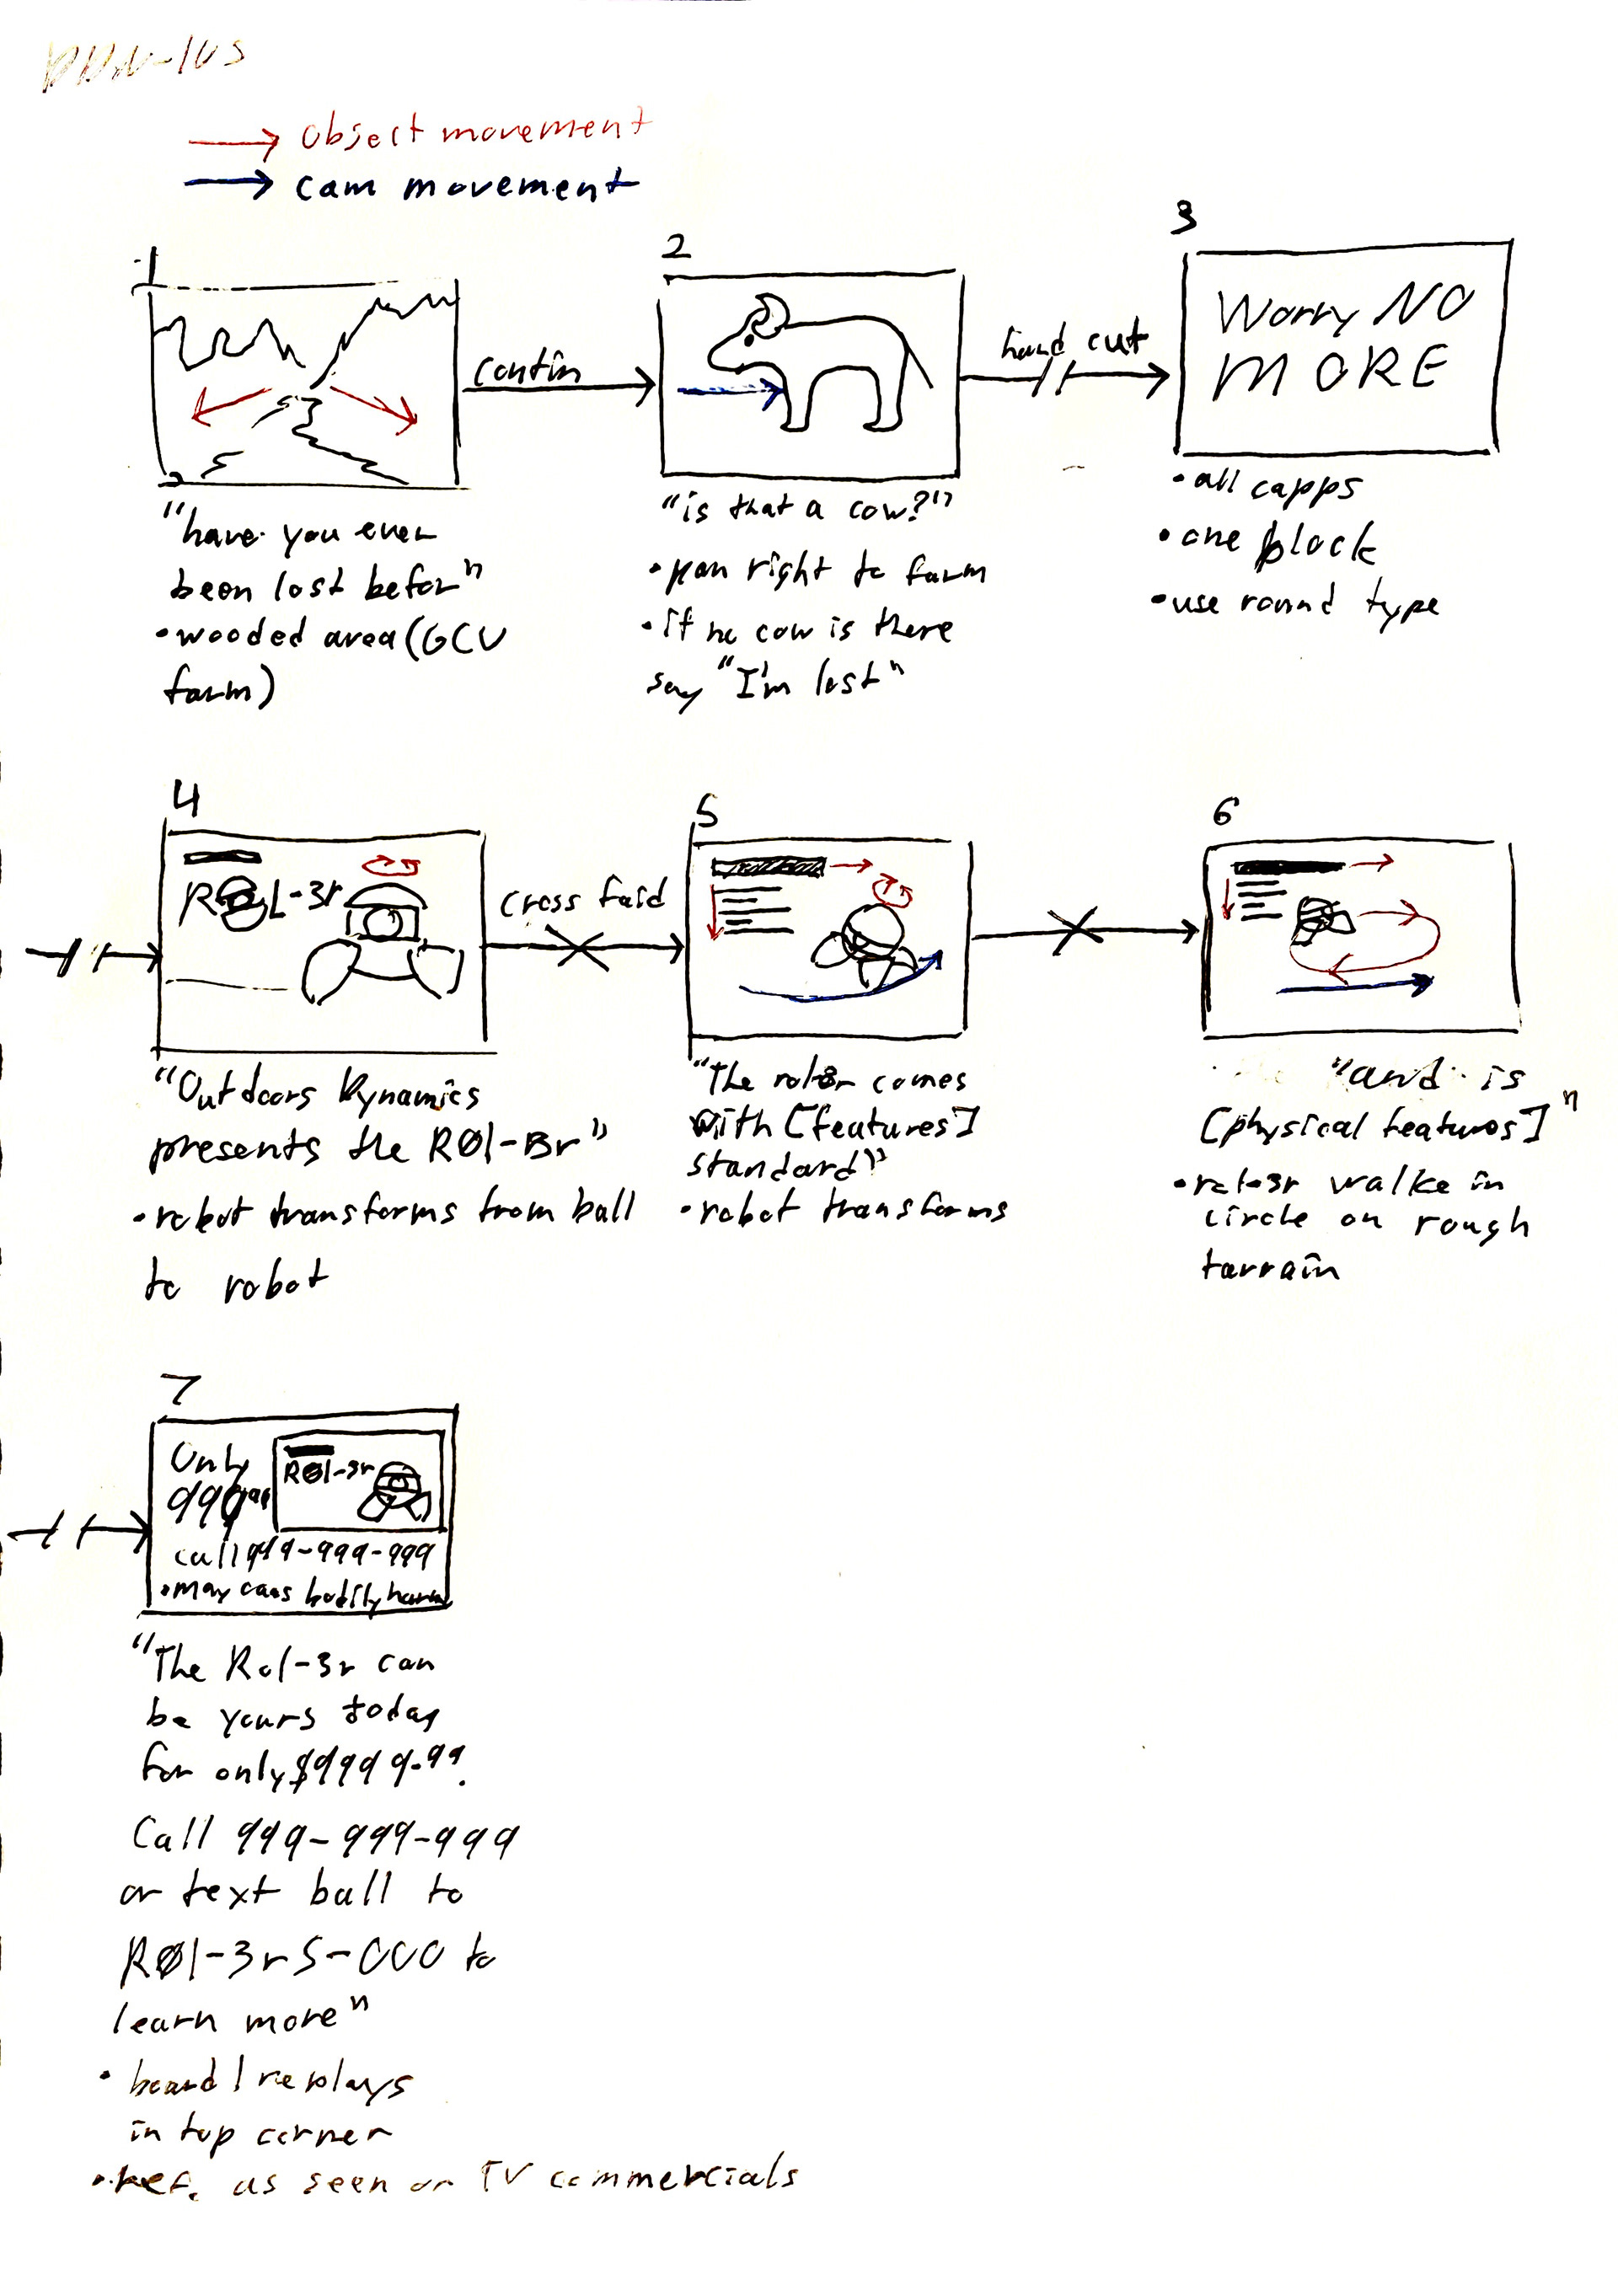 Object movement
cam movement
1
2
3
contin
hard cut
Worry NO
MORE
"have you ever
been lost befor"
• wooded area (GCU
farm)
"is that a cow?"
• pan right to farm
• if no cow is there
say "I'm lost"
• all capps
• one block
• use round type
4
5
6
RØL-3r
cross faid
"Outdoors Dynamics
presents the RØl-3r"
• robot transforms from ball
to robot
"The rol-3r comes
with [features]
standard"
• robot transforms
"and is
[physical features]"
• rol-3r walke in
circle on rough
tarrain
7
Only
RØl-3r
call 999-999-999
• may caas bodily harm
"The Rol-3r can
be yours today
for only $9999.99.
Call 999-999-999
or text ball to
RØl-3rS-000 to
learn more"
• board 1 replays
in top corner
• ref. as seen on TV commercials